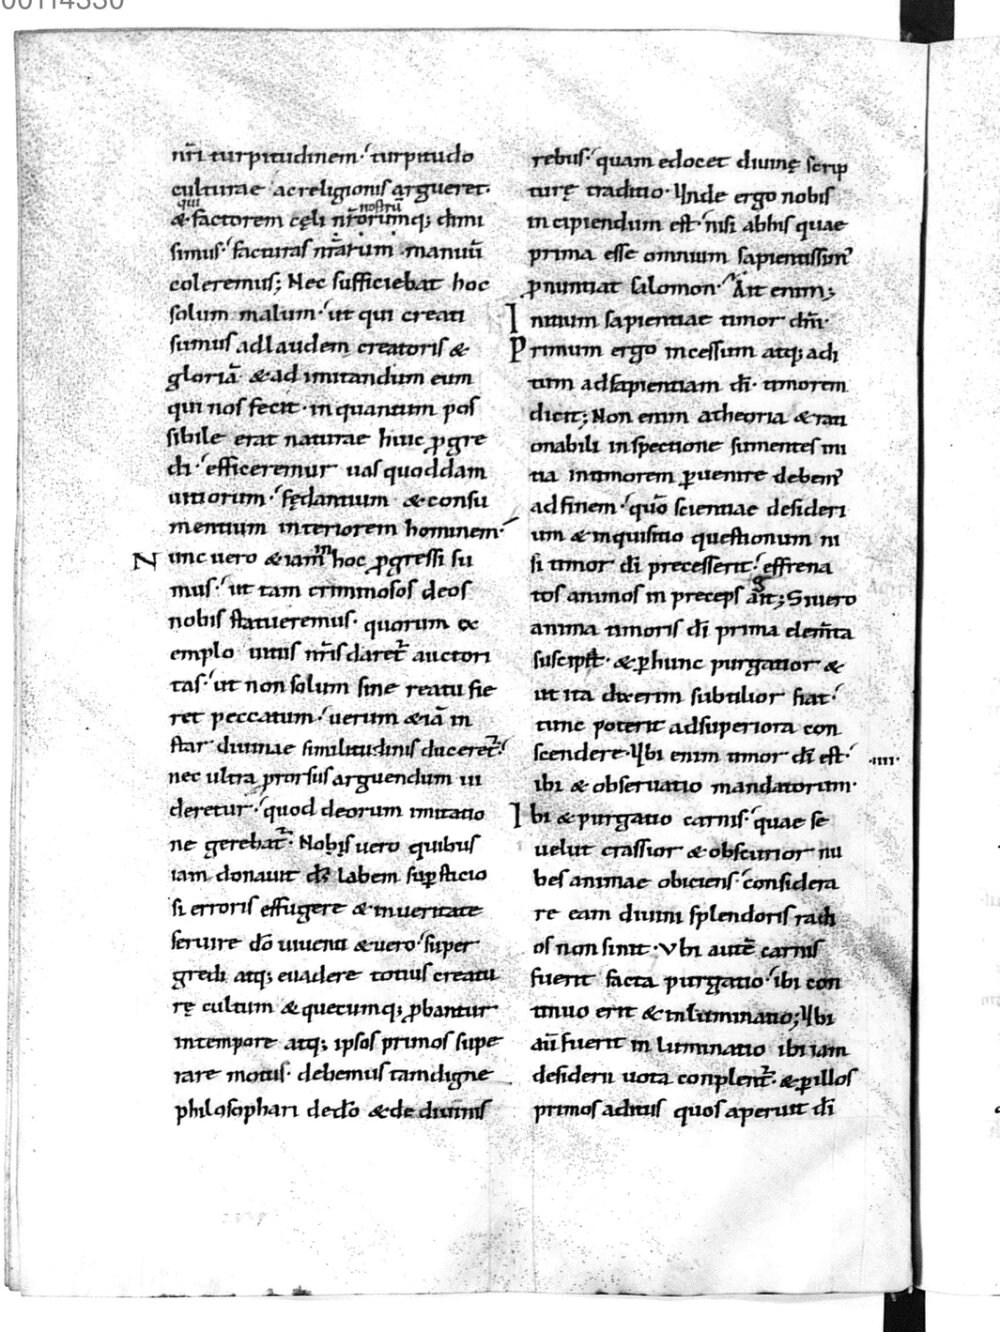 00114330
nr̄i turpitudinem· turpitudo
culturae ac religionis argueret·
qui nostrū
& factorem cęli nr̄orumq; chmi
simus· facturas nr̄arum manuū
coleremus; Nec sufficiebat hoc
solum malum· ut qui creati
sumus ad laudem creatoris &
gloriā & ad imitandum eum
qui nos fecit· in quantum pos
sibile erat naturae huic ꝓgre
di· efficeremur uas quoddam
uitiorum· fędantium & consu
mentium interiorem hominem·
Nunc uero & iam in hoc ꝓgressi su
mus· ut tam criminosos deos
nobis statueremus· quorum ex
emplo uitiis nr̄is daret᷑ auctori
tas· ut non solum sine reatu fie
ret peccatum· uerum & iā in
star diuinae similitudinis duceret᷑·
nec ultra prorsus arguendum ui
deretur· quod deorum imitatio
ne gerebat᷑· Nobis uero quibus
iam donauit ds̄ labem suꝑsticio
si erroris effugere & in ueritate
seruire dō uiuenti & uero· super
gredi atq; euadere totius creatu
rę cultum & quecumq; ꝓbantur
in tempore atq; ipsos primos supe
rare motus· debemus tam digne
philosophari de dō & de diuinis
rebus· quam edocet diuinę scrip
turę traditio· Unde ergo nobis
incipiendum est· nisi ab his quae
prima esse omnium sapientissim᾽
ꝓnuntiat salomon· Ait enim;
Initium sapientiae timor dn̄i·
Primum ergo incessum atq; adi
tum ad sapientiam dī· timorem
dicit; Non enim a theoria & rati
onabili inspectione sumentes ini
tia in timorem ꝑuenire debem᾽
ad finem· quō scientiae desideri
um & inquisitio questionum ni
si timor dī precesserit· effrena
tos animos in preceps aīt; Si uero
g
anima timoris dī prima elem̄ta
suscipit· & ꝑ hunc purgatior &
ut ita dixerim subtilior fiat·
tunc poterit ad superiora con
scendere· Ubi enim timor dī est· ·iiii·
ibi & obseruatio mandatorum·
Ibi & purgatio carnis· quae se
uelut crassior & obscurior nu
bes animae obiciens· considera
re eam diuini splendoris radi
os non sinit· Vbi autē carnis
fuerit facta purgatio· ibi con
tinuo erit & inluminatio; Ubi
aū fuerit inluminatio ibi iam
desiderii uota conplent᷑· & ꝑ illos
primos aditus quos aperuit dī